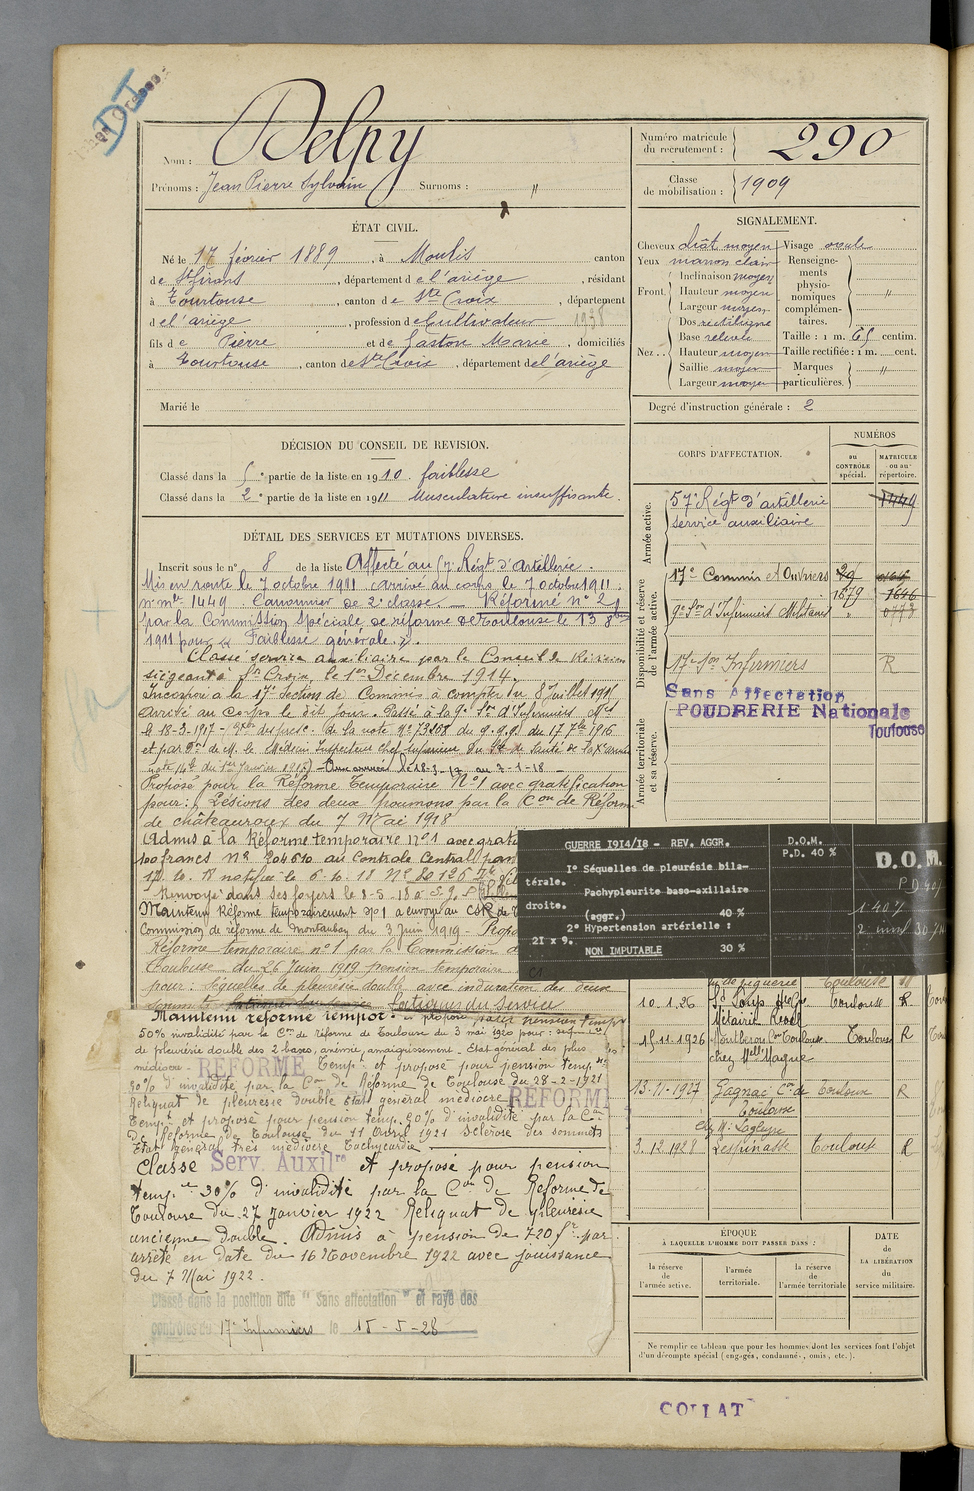 DI
Nom : Delpy
Prénoms : Jean Pierre Sylvain Surnoms : "
Numéro matricule du recrutement : 290
Classe de mobilisation : 1909
ÉTAT CIVIL.
Né le 17 février 1889, à Moulis canton
de St Girons, département de l'ariège, résidant
à Tourtouse, canton de Ste Croix, département
de l'ariège, profession de Cultivateur 1938
fils de Pierre et de Gaston Marie, domiciliés
à Tourtouse, canton de Ste Croix, département de l'ariège
Marié le
SIGNALEMENT.
Cheveux chât moyen Visage ovale
Yeux marron clair
Front. Inclinaison moyen
Hauteur moyen
Largeur moyen
Nez. Dos rectiligne
Base relevée
Hauteur moyen
Saillie moyen
Largeur moyen
Renseignements physionomiques complémentaires. "
Taille : 1 m. 65 centim.
Taille rectifiée : 1 m. cent.
Marques particulières. "
Degré d'instruction générale : 2
DÉCISION DU CONSEIL DE REVISION.
Classé dans la 5e partie de la liste en 1910 faiblesse
Classé dans la 2e partie de la liste en 1911 Musculature insuffisante.
CORPS D'AFFECTATION.
NUMÉROS
au CONTRÔLE spécial.
MATRICULE ou au répertoire.
Armée active.
57e Régt d'artillerie 1449
service auxiliaire
Disponibilité et réserve de l'armée active.
17e Commis et Ouvriers
1679 1646
9e Son d'Infirmiers Militaires
17e Son Infirmiers R
Armée territoriale et sa réserve.
Sans Affectation
POUDRERIE Nationale
Toulouse
DÉTAIL DES SERVICES ET MUTATIONS DIVERSES.
Inscrit sous le n° 8 de la liste Affecté au 57e Régt d'Artillerie.
Mis en route le 7 octobre 1911 arrivé au corps le 7 octobre 1911.
n° mle 1449. Canonnier de 2e classe. Réformé n° 2
par la Commission spéciale de réforme de Toulouse le 13 8bre
1911 pour « Faiblesse générale. »
Classé service auxiliaire par le Conseil de Révision
siégeant à Ste Croix, le 1er Décembre 1914.
Incorporé à la 17e Section de Commis à compter du 8 Juillet 1915
Arrivé au corps le dit jour. Passé à la 9e Son d'Infirmiers Mres
le 18-3-1917
Proposé pour la Réforme Temporaire N°1 avec gratification
pour : Lésions des deux poumons par la Con de Réforme
de châteauroux du 7 Mai 1918
Admis à la Réforme temporaire n°1 avec grat
Renvoyé dans ses foyers le 8-5-18
Maintenu Réforme temporairement n°1
Commission de réforme de Montauban du 3 Juin 1919 - Propo
Réforme temporaire n°1 par la Commission d
Toulouse du 26 Juin 1919 pension temporaire
pour : Séquelles de pleurésie double avec induration des deux
sommets fatigues du Service
GUERRE 1914/18 - REV. AGGR.
I° Séquelles de pleurésie bilatérale.
Pachypleurite baso-axillaire droite.
(aggr.) 40 %
2° Hypertension artérielle :
21 x 9.
NON IMPUTABLE 30 %
D.O.M.
P.D. 40 %
D.O.M.
Maintenu réforme tempor. et proposé pour pension temp
50% invalidité par la Con de réforme de Toulouse du 3 mai 1920 pour :
de pleurésie double des 2 bases, anémie, amaigrissement - Etat général des plus
médiocre - REFORME Temp. et proposé pour pension temp.
30% d'invalidité par la Con de Réforme de Toulouse du 28-2-1921
Reliquat de pleurésie double Etat général médiocre REFORM
Temp. et proposé pour pension temp. 50% d'invalidité par la Con
de Réforme de Toulouse du 11 Avril 1921 Sclérose des sommets
Etat général très médiocre Tachycardie
Classé Serv. Auxilre et proposé pour pension
temp. 30% d'invalidité par la Con de Réforme de
Toulouse du 27 Janvier 1922 Reliquat de pleurésie
ancienne double. Admis à pension de 720 fr. par
arrêté en date du 16 Novembre 1922 avec jouissance
du 7 Mai 1922.
Classé dans la position dite "Sans affectation" et rayé des
contrôles du 17e Infirmiers le 15-5-28
Toulouse
10.1.26 Toulouse R
15.11.1926 Toulouse R
chez Melle Magne
13-11-1927 Gagnac Con de Toulouse Toulouse R
3.12.1928 Lespinasse Toulouse R
ÉPOQUE
À LAQUELLE L'HOMME DOIT PASSER DANS :
la réserve de l'armée active.
l'armée territoriale.
la réserve de l'armée territoriale
DATE de LA LIBÉRATION du service militaire.
Ne remplir ce tableau que pour les hommes dont les services font l'objet
d'un décompte spécial (engagés, condamnés, omis, etc.).
COLLAT